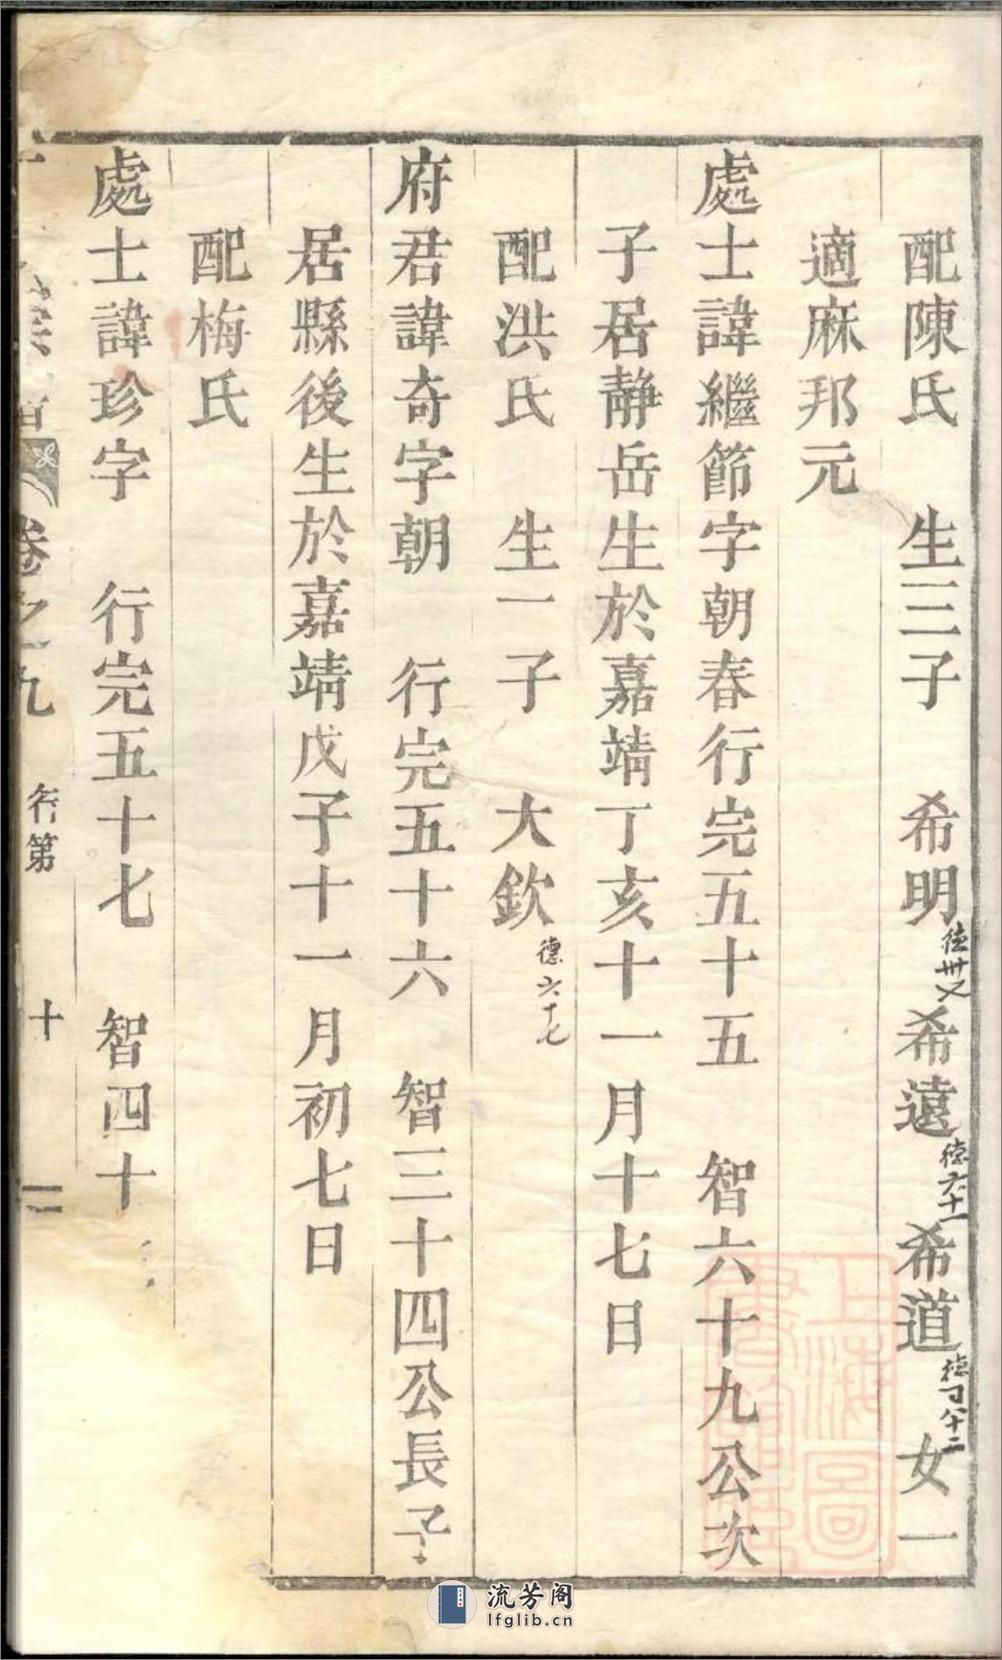 配陳氏　生三子　希明德卅又希遠德六十一希道德　八十二女一
適麻邦元
處士諱繼節字朝春行完五十五　智六十九公次
子居靜岳生於嘉靖丁亥十一月十七日
配洪氏　生一子　大欽德六十七
府君諱奇字朝　行完五十六　智三十四公長子
居縣後生於嘉靖戊子十一月初七日
配梅氏
處士諱珍字　行完五十七　智四十
宗　卷之九　行第　十
上海圖書館藏
流芳阁
lfglib.cn